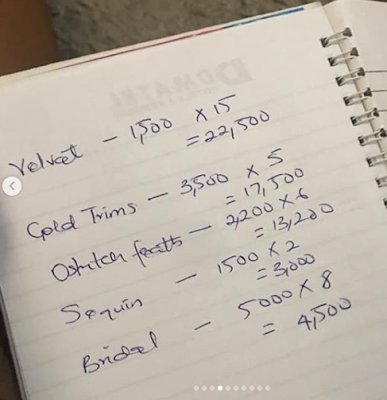 Velvet – 1,500 × 15
= 22,500
Gold Trims – 3,500 × 5
= 17,500
Ostrich – 2,200 × 6
= 13,200
Sequin – 1500 × 2
= 3,000
Bridal – 5000 × 8
= 4,500